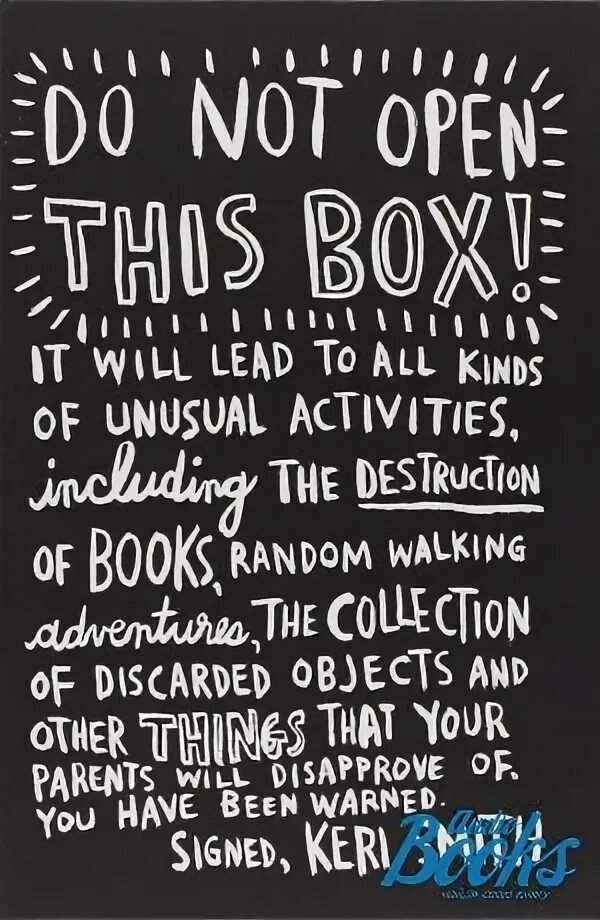 DO NOT OPEN
THIS BOX!
IT WILL LEAD TO ALL KINDS
OF UNUSUAL ACTIVITIES,
including THE DESTRUCTION
OF BOOKS, RANDOM WALKING
adventures, THE COLLECTION
OF DISCARDED OBJECTS AND
OTHER THINGS THAT YOUR
PARENTS WILL DISAPPROVE OF.
YOU HAVE BEEN WARNED.
SIGNED, KERI
Books